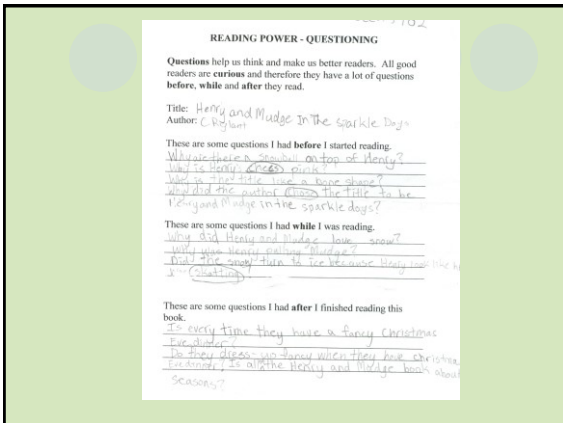 READING POWER - QUESTIONING
Questions help us think and make us better readers. All good
readers are curious and therefore they have a lot of questions
before, while and after they read.
Title: Henry and Mudge In The sparkle Days
Author: C Rylant
These are some questions I had before I started reading.
Why are there a snowball on top of Henry?
Why is Henry's pink?
Why is the title like a bone shape?
Why did the author chose the title to be
Henry and Mudge in the sparkle days?
These are some questions I had while I was reading.
Why did Henry and Mudge love snow?
Why was Henry pulling Mudge?
Did the snow turn to ice because Henry look like he
is skatting
These are some questions I had after I finished reading this
book.
Is every time they have a fancy Christmas
Eve dinner?
Do they dress up fancy when they have christmas
Eve dinner? Is all the Henry and Mudge book about
seasons?